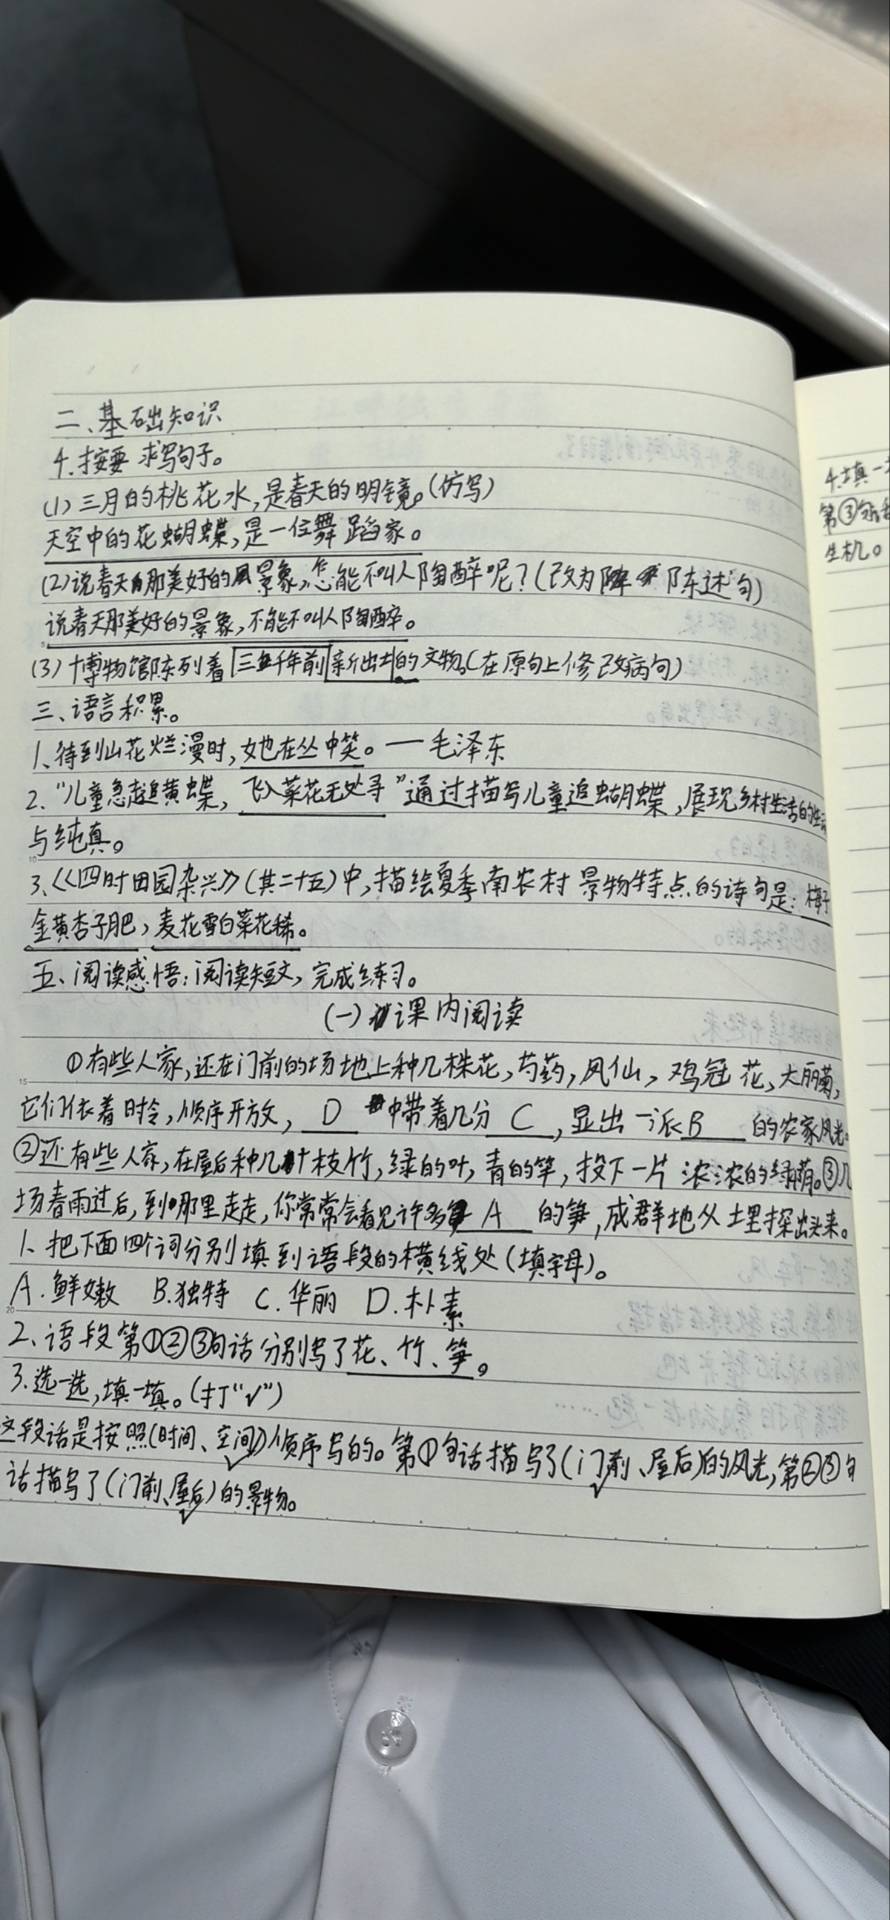 二、基础知识
4.按要求写句子。
(1)三月的桃花水,是春天的明镜。(仿写)
天空中的花蝴蝶,是一位舞蹈家。
(2)说春天那美好的风景象,怎能不叫人陶醉呢?(改为陈述句)
说春天那美好的景象,不能不叫人陶醉。
(3)博物馆陈列着三五千年前新出土的文物。(在原句上修改病句)
三、语言积累。
1、待到山花烂漫时,她在丛中笑。—毛泽东
2、"儿童急走追黄蝶,飞入菜花无处寻"通过描写儿童追蝴蝶,展现乡村生活的
与纯真。
3、《四时田园杂兴》(其二十五)中,描绘夏季南农村景物特点的诗句是:梅子
金黄杏子肥,麦花雪白菜花稀。
五、阅读感悟:阅读短文,完成练习。
(一)课内阅读
①有些人家,还在门前的场地上种几株花,芍药,凤仙,鸡冠花,大丽菊,
它们依着时令,顺序开放,D中带着几分C,显出一派B的农家风光。
②还有些人家,在屋后种几十枝竹,绿的叶,青的竿,投下一片浓浓的绿荫。③几
场春雨过后,到那里走走,你常常会看见许多A的笋,成群地从土里探出头来。
1、把下面四个词分别填到语段的横线处(填字母)。
A.鲜嫩 B.独特 C.华丽 D.朴素
2、语段第①②③句话分别写了花、竹、笋。
3.选一选,填一填。(打"√")
这段话是按照(时间、空间√)顺序写的。第①句话描写了(门前√、屋后)的风光,第②③句
话描写了(门前、屋后√)的景物。
4.填一
第③句话
生机。